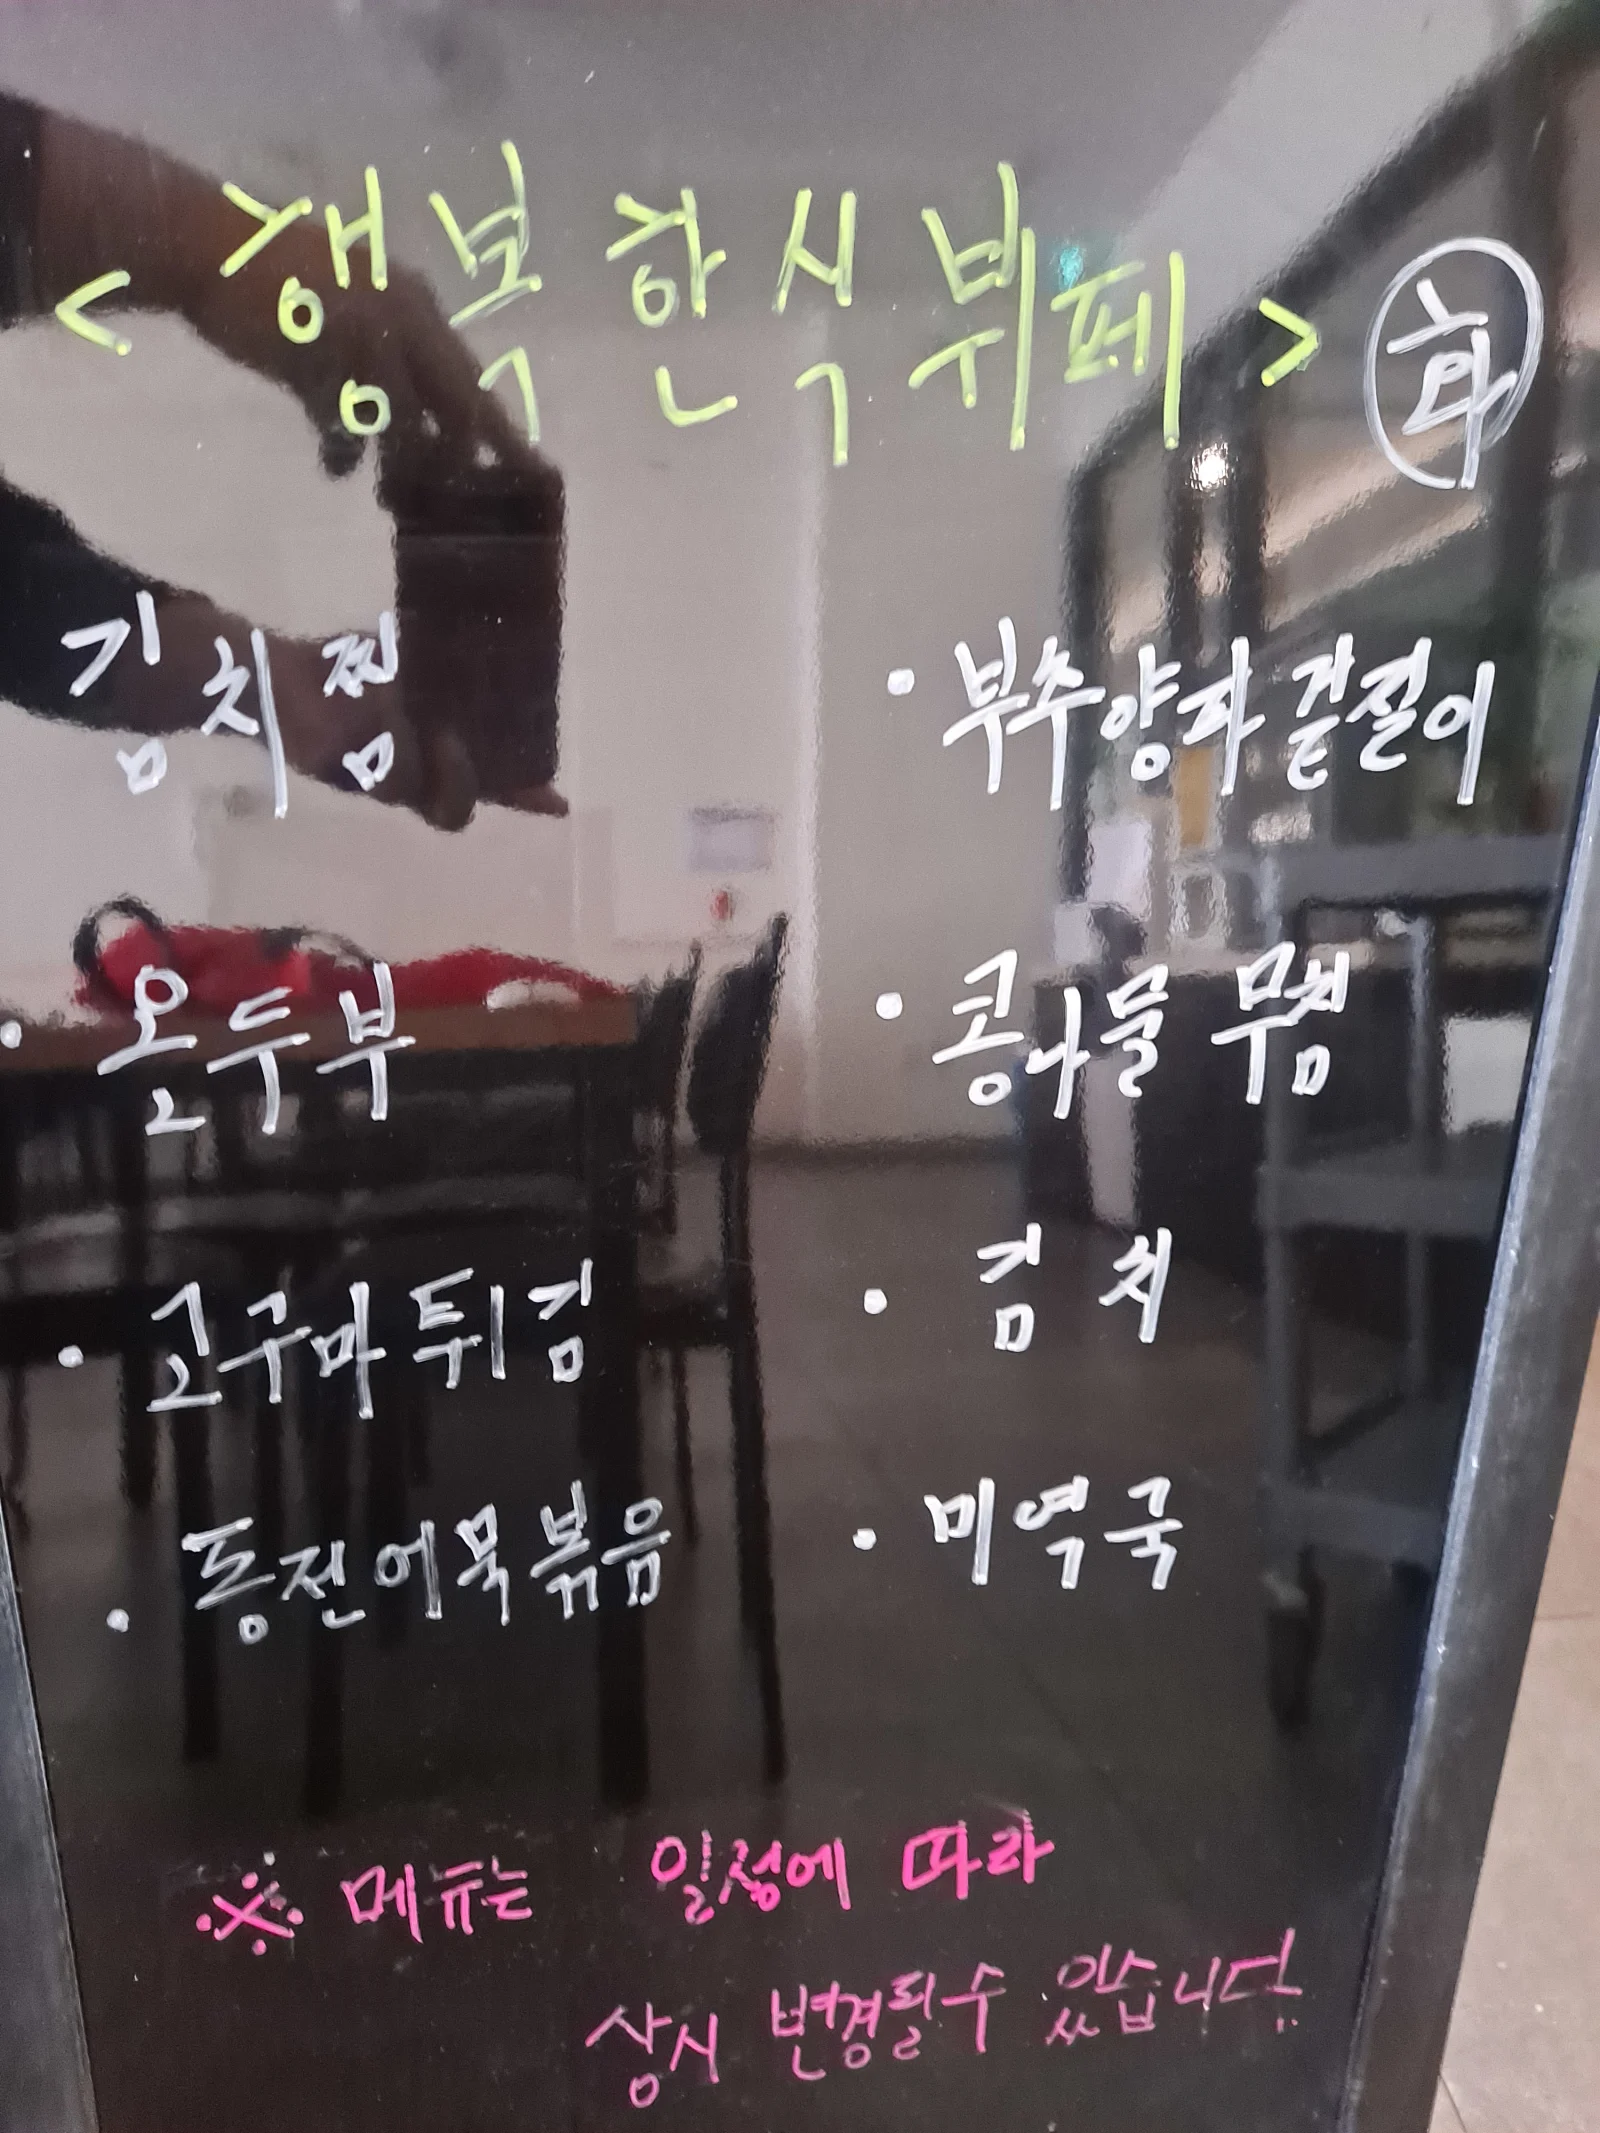 < 행복한식뷔페 > 화
김치찜
· 부추양파겉절이
· 온두부
· 콩나물 무침
· 고구마튀김
· 김치
· 동전어묵볶음
· 미역국
※ 메뉴는 일정에 따라
상시 변경될수 있습니다.